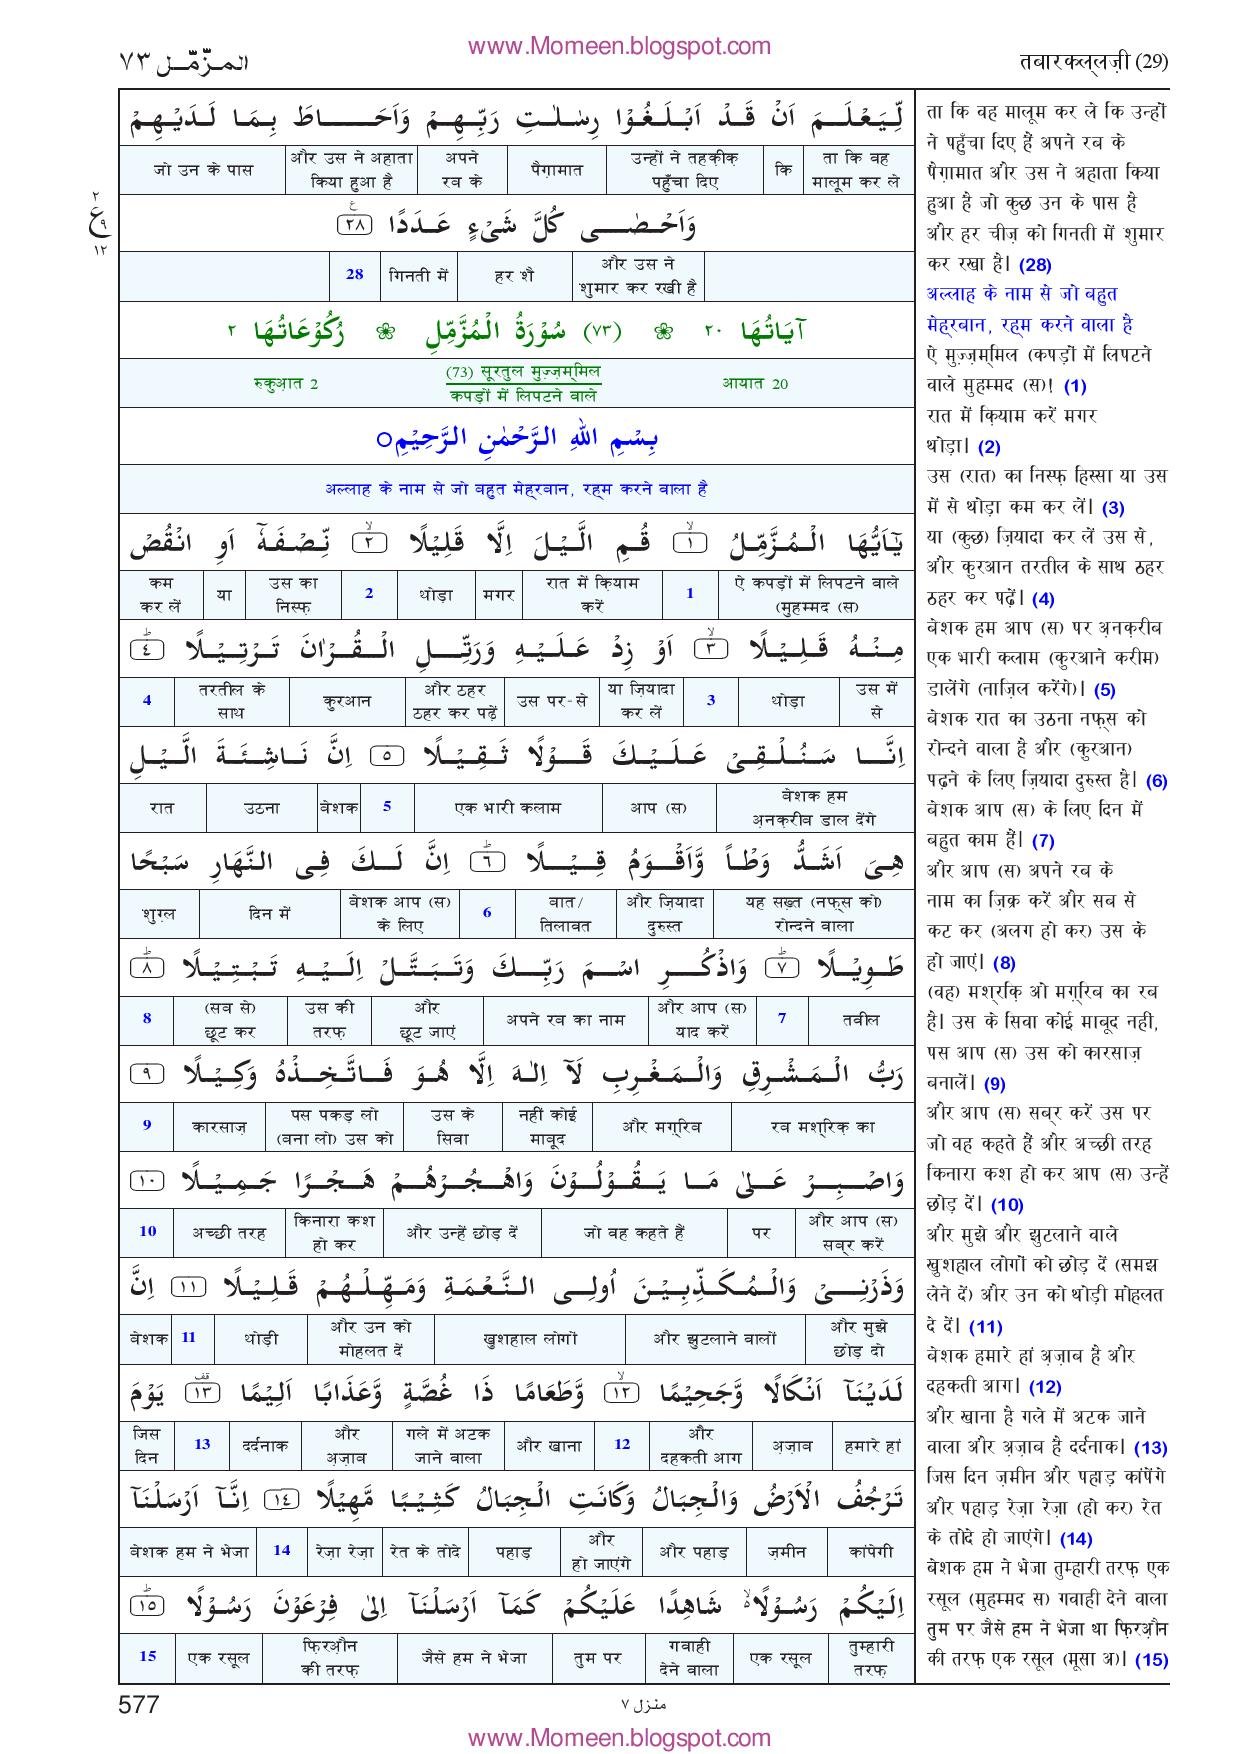 www.Momeen.blogspot.com
तबारकल्लज़ी (29)
المزّمّل ٧٣
لِّيَعْلَمَ اَنْ قَدْ اَبْلَغُوْا رِسٰلٰتِ رَبِّهِمْ وَاَحَاطَ بِمَا لَدَيْهِمْ
ता कि वह मालूम कर ले | कि | उन्हों ने तहक़ीक़ पहुँचा दिए | पैग़ामात | अपने रब के | और उस ने अहाता किया हुआ है | जो उन के पास
وَاَحْصٰى كُلَّ شَىْءٍ عَدَدًا ﴿٢٨﴾
ع
٢
ع
٩
١٢
और उस ने शुमार कर रखी है | हर शै | गिनती में | 28
آيَاتُهَا ٢٠ ❀ (٧٣) سُوْرَةُ الْمُزَّمِّلِ ❀ رُكُوْعَاتُهَا ٢
आयात 20 | (73) सूरतुल मुज़्ज़म्मिल | रुकुआ़त 2
कपड़ों में लिपटने वाले
بِسْمِ اللهِ الرَّحْمٰنِ الرَّحِيْمِ○
अल्लाह के नाम से जो बहुत मेह्रबान, रह्म करने वाला है
يٰٓاَيُّهَا الْمُزَّمِّلُ ﴿١﴾ قُمِ الَّيْلَ اِلَّا قَلِيْلًا ﴿٢﴾ نِّصْفَهٗٓ اَوِ انْقُصْ
ऐ कपड़ों में लिपटने वाले (मुहम्मद (स) | 1 | रात में क़ियाम करें | मगर | थोड़ा | 2 | उस का निस्फ़ | या | कम कर लें
مِنْهُ قَلِيْلًا ﴿٣﴾ اَوْ زِدْ عَلَيْهِ وَرَتِّلِ الْقُرْاٰنَ تَرْتِيْلًا ﴿٤﴾
उस में से | थोड़ा | 3 | या ज़ियादा कर लें | उस पर-से | और ठहर ठहर कर पढ़ें | कुरआन | तरतील के साथ | 4
اِنَّا سَنُلْقِىْ عَلَيْكَ قَوْلًا ثَقِيْلًا ﴿٥﴾ اِنَّ نَاشِئَةَ الَّيْلِ
बेशक हम अ़नक़रीब डाल देंगे | आप (स) | एक भारी कलाम | 5 | बेशक | उटना | रात
هِىَ اَشَدُّ وَطْاً وَّاَقْوَمُ قِيْلًا ﴿٦﴾ اِنَّ لَكَ فِى النَّهَارِ سَبْحًا
यह सख़्त (नफ़्स को) रोन्दने वाला | और ज़ियादा दुरुस्त | बात/ तिलावत | 6 | बेशक आप (स) के लिए | दिन में | शुग़ल
طَوِيْلًا ﴿٧﴾ وَاذْكُرِ اسْمَ رَبِّكَ وَتَبَتَّلْ اِلَيْهِ تَبْتِيْلًا ﴿٨﴾
तवील | 7 | और आप (स) याद करें | अपने रब का नाम | और छूट जाएं | उस की तरफ़ | (सब से) छूट कर | 8
رَبُّ الْمَشْرِقِ وَالْمَغْرِبِ لَآ اِلٰهَ اِلَّا هُوَ فَاتَّخِذْهُ وَكِيْلًا ﴿٩﴾
रब मश्रिक़ का | और मग़्रिब | नहीं कोई माबूद | उस के सिवा | पस पकड़ लो (बना लो) उस को | कारसाज़ | 9
وَاصْبِرْ عَلٰى مَا يَقُوْلُوْنَ وَاهْجُرْهُمْ هَجْرًا جَمِيْلًا ﴿١٠﴾
और आप (स) सब्र करें | पर | जो वह कहते हैं | और उन्हें छोड़ दें | किनारा कश हो कर | अच्छी तरह | 10
وَذَرْنِىْ وَالْمُكَذِّبِيْنَ اُولِى النَّعْمَةِ وَمَهِّلْهُمْ قَلِيْلًا ﴿١١﴾ اِنَّ
और मुझे छोड़ दो | और झुटलाने वालों | खुशहाल लोगों | और उन को मोहलत दें | थोड़ी | 11 | बेशक
لَدَيْنَآ اَنْكَالًا وَّجَحِيْمًا ﴿١٢﴾ وَّطَعَامًا ذَا غُصَّةٍ وَّعَذَابًا اَلِيْمًا ﴿١٣﴾ يَوْمَ
हमारे हां | अ़ज़ाब | और दहकती आग | 12 | और खाना | गले में अटक जाने वाला | और अ़ज़ाब | दर्दनाक | 13 | जिस दिन
تَرْجُفُ الْاَرْضُ وَالْجِبَالُ وَكَانَتِ الْجِبَالُ كَثِيْبًا مَّهِيْلًا ﴿١٤﴾ اِنَّآ اَرْسَلْنَآ
कांपेगी | ज़मीन | और पहाड़ | और हो जाएंगे | पहाड़ | रेत के तोदे | रेज़ा रेज़ा | 14 | बेशक हम ने भेजा
اِلَيْكُمْ رَسُوْلًا شَاهِدًا عَلَيْكُمْ كَمَآ اَرْسَلْنَآ اِلٰى فِرْعَوْنَ رَسُوْلًا ﴿١٥﴾
तुम्हारी तरफ़ | एक रसूल | गवाही देने वाला | तुम पर | जैसे हम ने भेजा | फ़िरऔ़न की तरफ़ | एक रसूल | 15
ता कि वह मालूम कर ले कि उन्हों
ने पहुँचा दिए हैं अपने रब के
पैग़ामात और उस ने अहाता किया
हुआ है जो कुछ उन के पास है
और हर चीज़ को गिनती में शुमार
कर रखा है। (28)
अल्लाह के नाम से जो बहुत
मेह्रबान, रह्म करने वाला है
ऐ मुज़्ज़म्मिल (कपड़ों में लिपटने
वाले मुहम्मद (स)! (1)
रात में क़ियाम करें मगर
थोड़ा। (2)
उस (रात) का निस्फ़ हिस्सा या उस
में से थोड़ा कम कर लें। (3)
या (कुछ) ज़ियादा कर लें उस से,
और कुरआन तरतील के साथ ठहर
ठहर कर पढ़ें। (4)
बेशक हम आप (स) पर अ़नक़रीब
एक भारी कलाम (कुरआने करीम)
डालेंगे (नाज़िल करेंगे)। (5)
बेशक रात का उठना नफ़्स को
रोन्दने वाला है और (कुरआन)
पढ़ने के लिए ज़ियादा दुरुस्त है। (6)
बेशक आप (स) के लिए दिन में
बहुत काम हैं। (7)
और आप (स) अपने रब के
नाम का ज़िक्र करें और सब से
कट कर (अलग हो कर) उस के
हो जाएं। (8)
(वह) मश्रिक़ ओ मग़्रिब का रब
है। उस के सिवा कोई माबूद नही,
पस आप (स) उस को कारसाज़
बनालें। (9)
और आप (स) सब्र करें उस पर
जो वह कहते हैं और अच्छी तरह
किनारा कश हो कर आप (स) उन्हें
छोड़ दें। (10)
और मुझे और झुटलाने वाले
खुशहाल लोगों को छोड़ दें (समझ
लेने दें) और उन को थोड़ी मोहलत
दे दें। (11)
बेशक हमारे हां अ़ज़ाब है और
दहकती आग। (12)
और खाना है गले में अटक जाने
वाला और अ़ज़ाब है दर्दनाक। (13)
जिस दिन ज़मीन और पहाड़ कांपेंगे
और पहाड़ रेज़ा रेज़ा (हो कर) रेत
के तोदे हो जाएंगे। (14)
बेशक हम ने भेजा तुम्हारी तरफ़ एक
रसूल (मुहम्मद स) गवाही देने वाला
तुम पर जैसे हम ने भेजा था फ़िरऔ़न
की तरफ़ एक रसूल (मूसा अ)। (15)
577
منزل ٧
www.Momeen.blogspot.com